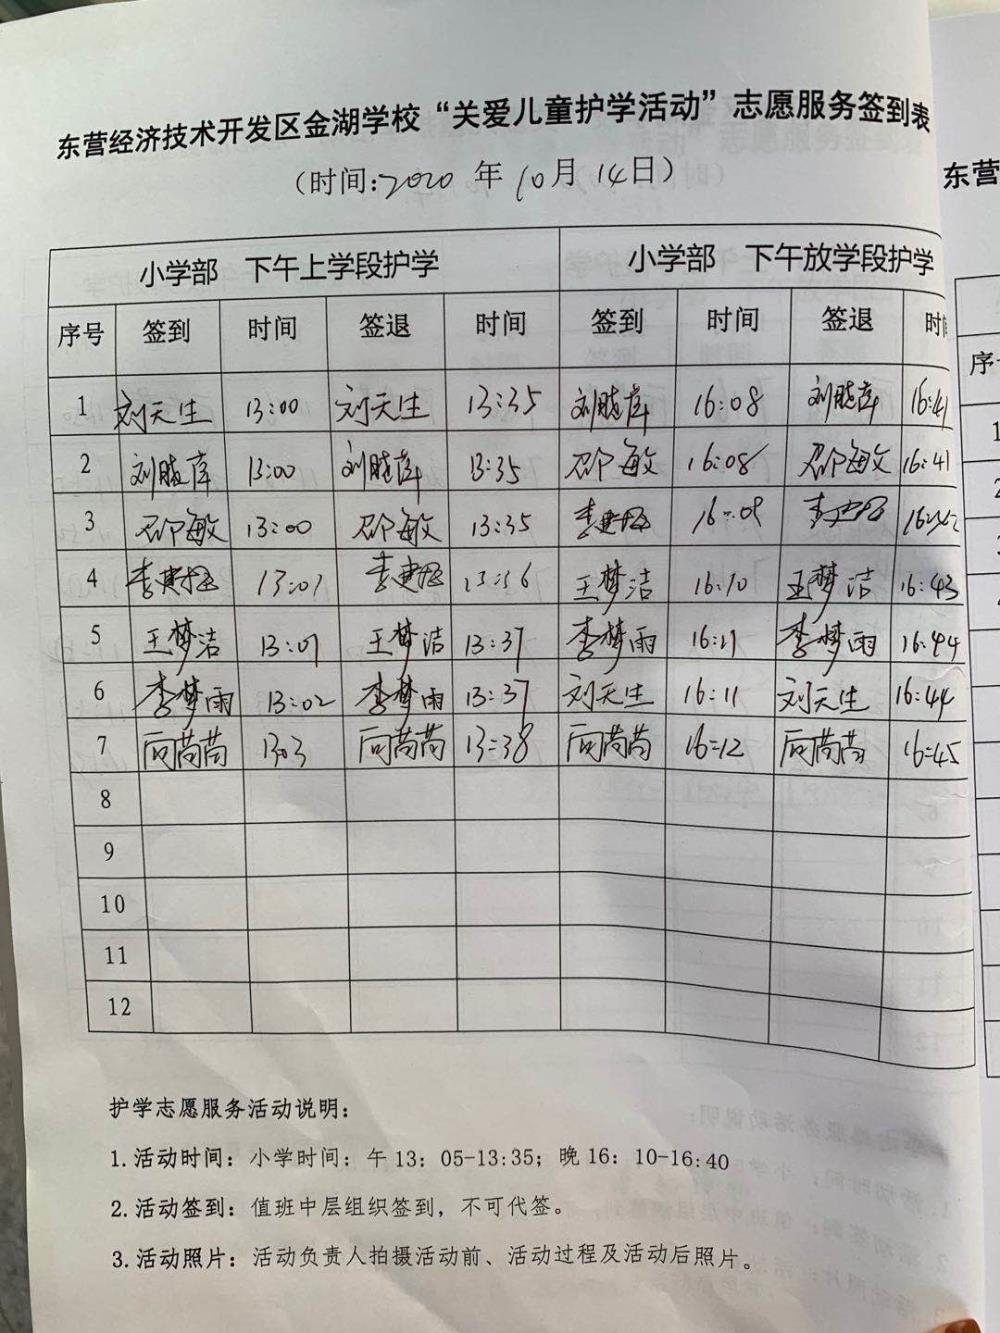 东营经济技术开发区金湖学校“关爱儿童护学活动”志愿服务签到表
（时间:2020 年 10月 14日）
小学部 下午上学段护学 小学部 下午放学段护学
序号 签到 时间 签退 时间 签到 时间 签退 时间
1 刘天生 13:00 刘天生 13:35 刘晓萍 16:08 刘晓萍 16:41
2 刘晓萍 13:00 刘晓萍 13:35 邵敏 16:08 邵敏 16:41
3 邵敏 13:00 邵敏 13:35 李 16:09 李 16:42
4 李 13:01 李 13:36 王梦洁 16:10 王梦洁 16:43
5 王梦洁 13:01 王梦洁 13:37 李梦雨 16:11 李梦雨 16:44
6 李梦雨 13:02 李梦雨 13:37 刘天生 16:11 刘天生 16:44
7 尚苘苘 13:03 尚苘苘 13:38 尚苘苘 16:12 尚苘苘 16:45
8
9
10
11
12
护学志愿服务活动说明：
1.活动时间：小学时间：午13：05-13:35；晚16：10-16:40
2.活动签到：值班中层组织签到，不可代签。
3.活动照片：活动负责人拍摄活动前、活动过程及活动后照片。
东营
序